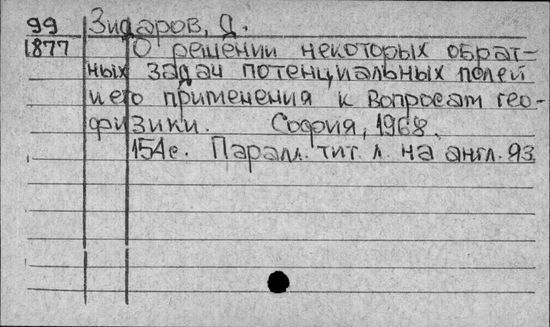 99 Зидаров, Д.
1877 О решении некоторых обрат-
ных задач потенциальных полей
и его применения к вопросам гео-
физики. София, 1968.
154с. Паралл. тит. л. на англ. яз.